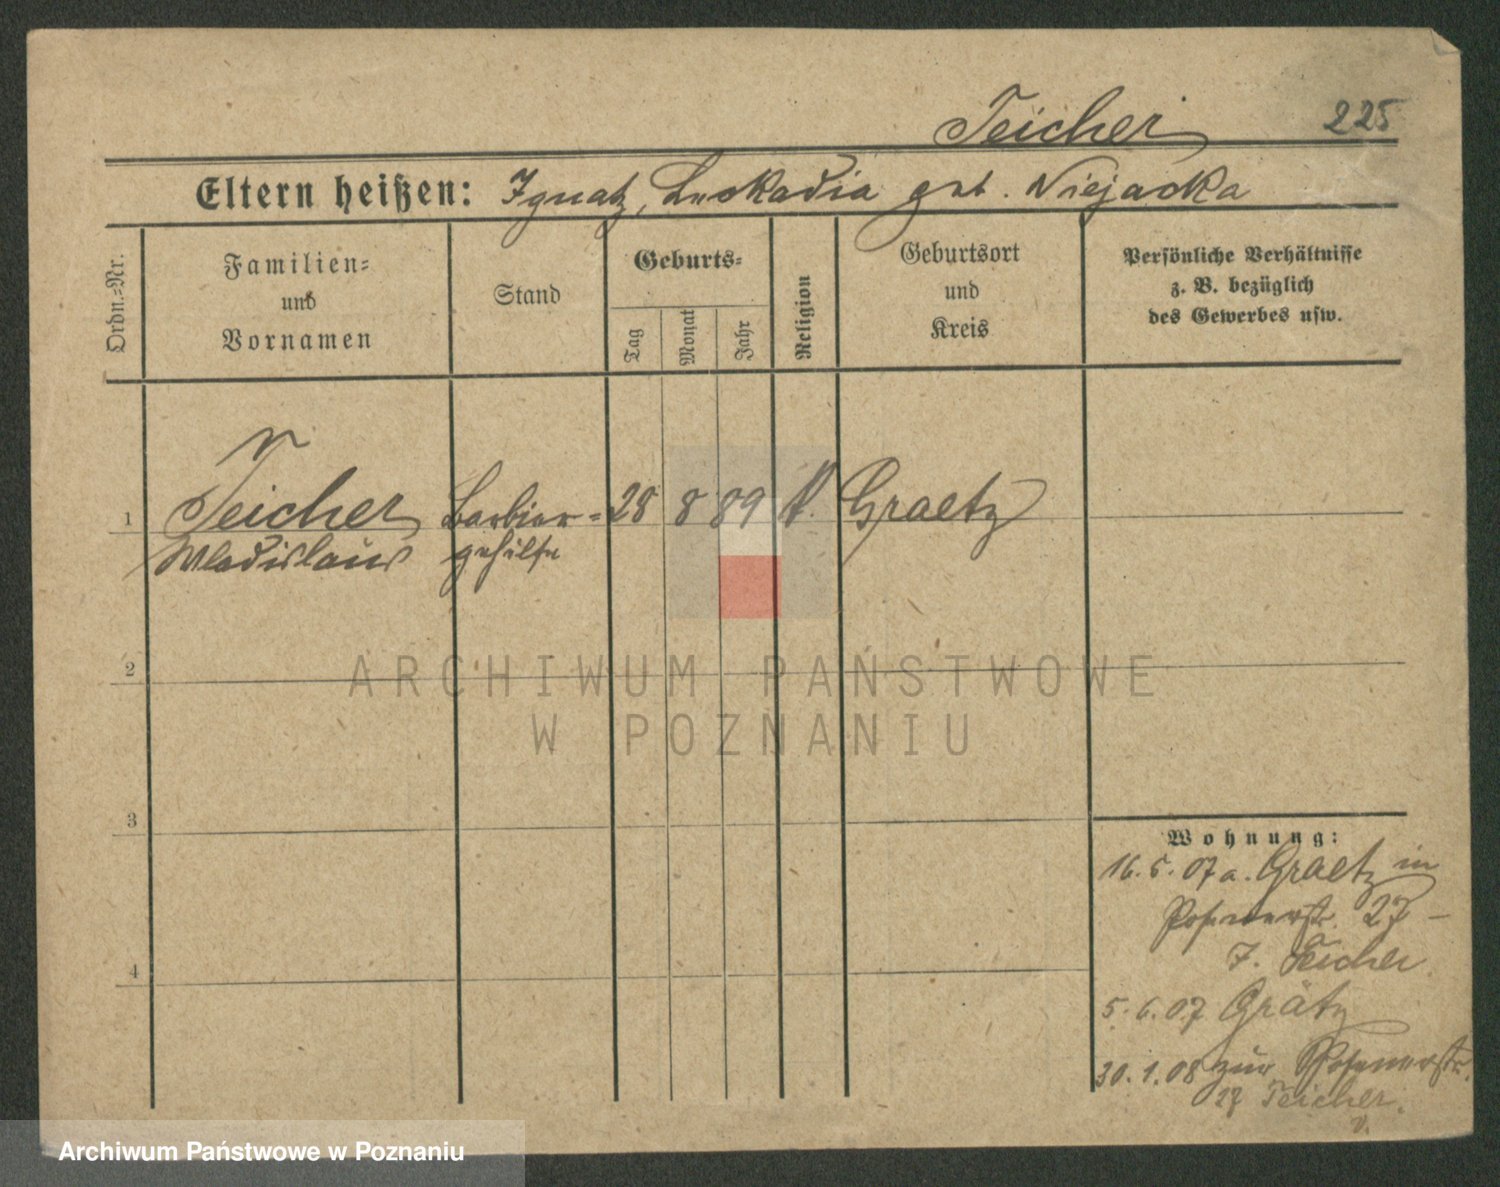 Teicher 225
Eltern heißen: Ignatz, Leokadia geb. Niejacka
Ordn.-Nr.
Familien-
und
Vornamen
Stand
Geburts-
Tag
Monat
Jahr
Religion
Geburtsort
und
Kreis
Persönliche Verhältnisse
z. B. bezüglich
des Gewerbes usw.
1 Teicher Barbier- 28 8 89 k. Graetz
Wladislaus gehilfe
2
3
4
Wohnung:
16.5.07 a. Graetz in
Posenerstr. 27 –
J. Teicher
5.6.07 Grätz
30.1.08 zur Posenerstr.
27 Teicher.
ARCHIWUM PAŃSTWOWE
W POZNANIU
Archiwum Państwowe w Poznaniu